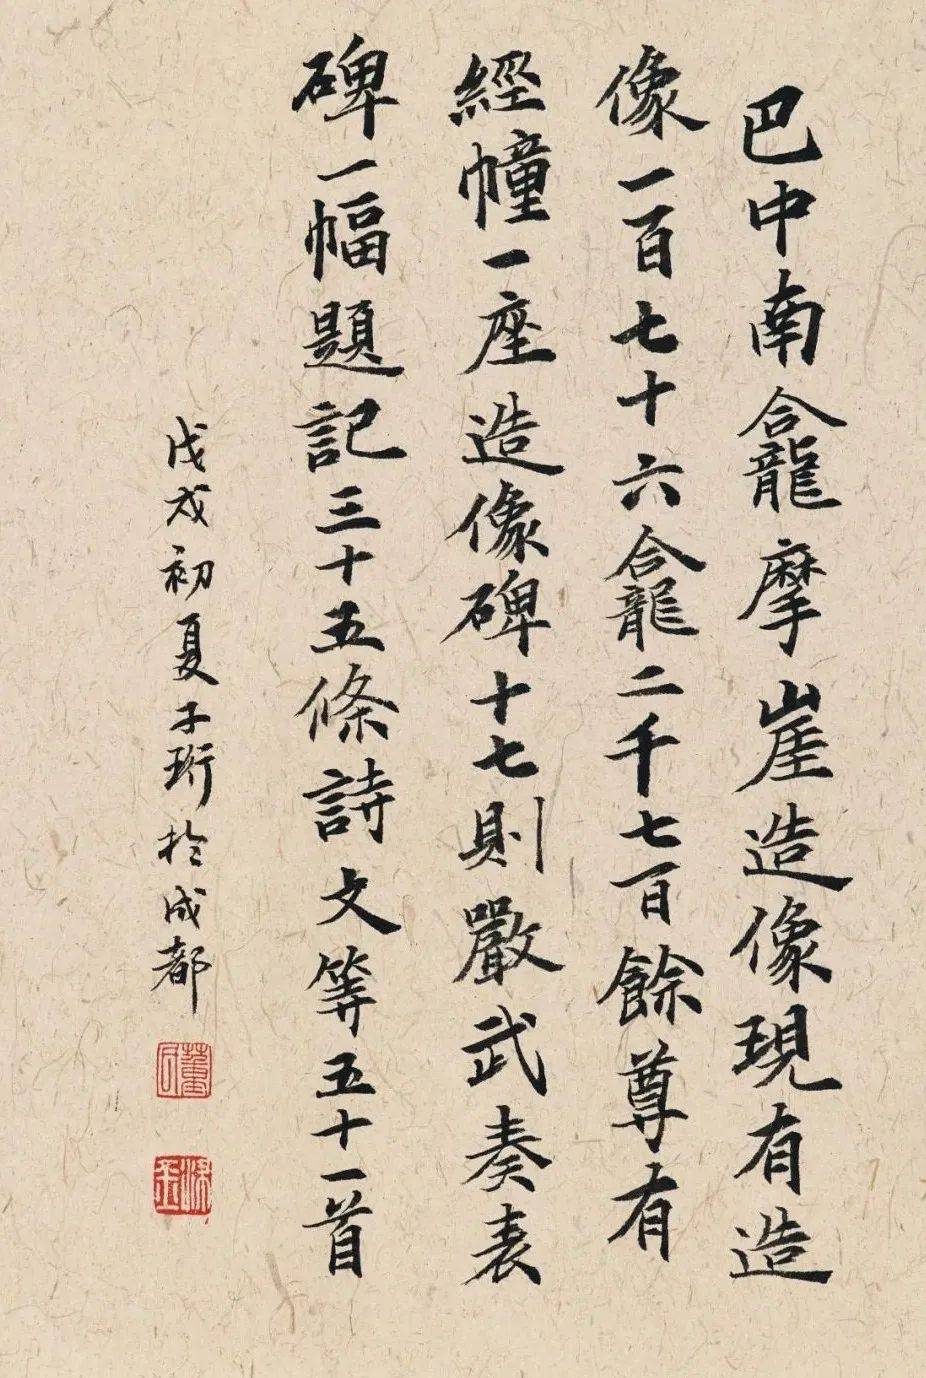 巴中南龕摩崖造像現有造
像一百七十六龕二千七百餘尊有
經幢一座造像碑十七則嚴武奏表
碑一幅題記三十五條詩文等五十一首
戊戌初夏子珩於成都